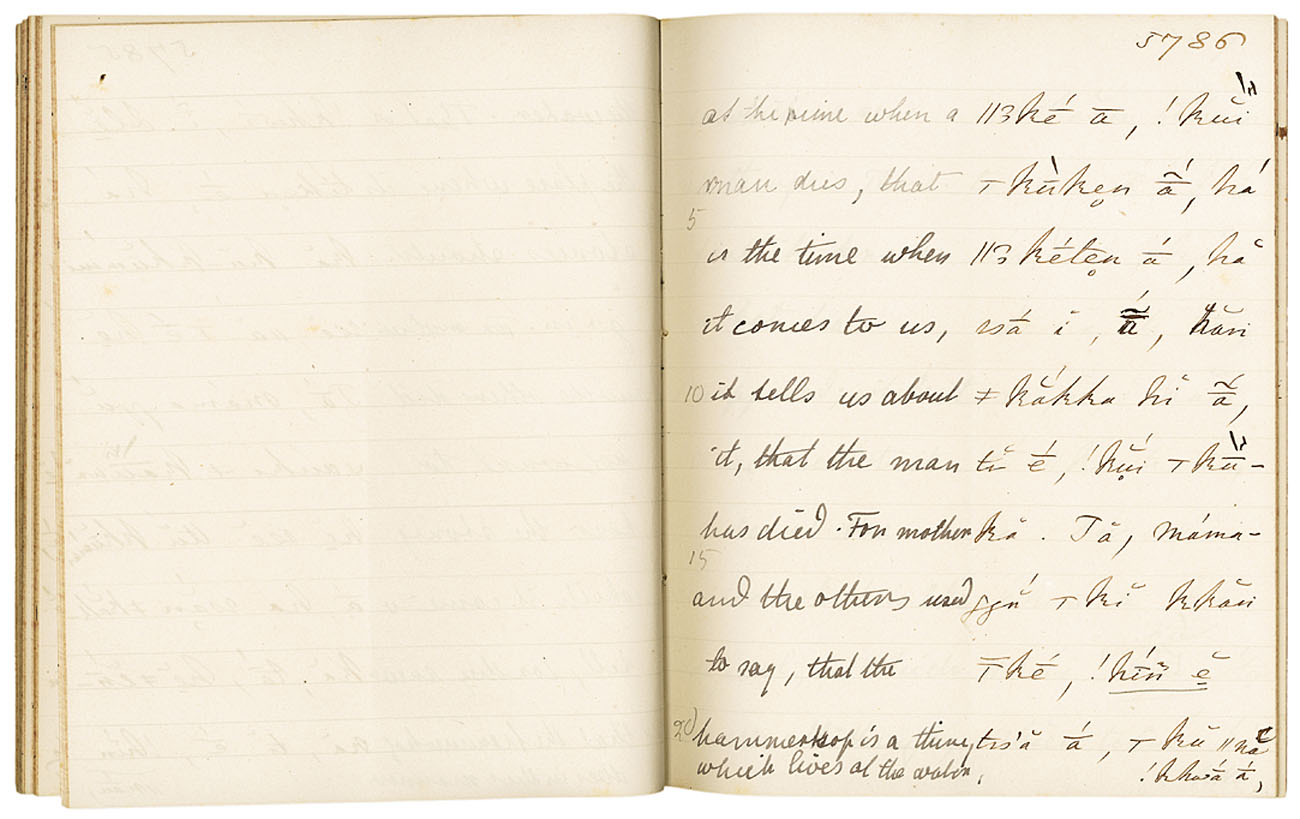 5786
at the time when a ǁɜkḗ ā, !kŭi
man dies, that ⊤kùkęn ā́, há
5
is the time when ǁɜkéten ā́, hă
it comes to us, ssā́ ĭ, ā̃́, hăn
10 it tells us about ǂkăkka hĭ ā̃,
it, that the man tĭ ḗ, !kŭi ⊤kū-
has died. For mother kă. Tă, máma-
15
and the others used ggú ⊤kĭ kkăn
to say, that the ⊤kḗ, !hī́n ĕ
20 hammerkop is a thing tss'ă ā́, ⊤kŭ ǁnă
which lives at the water, !khwā́ ā́,